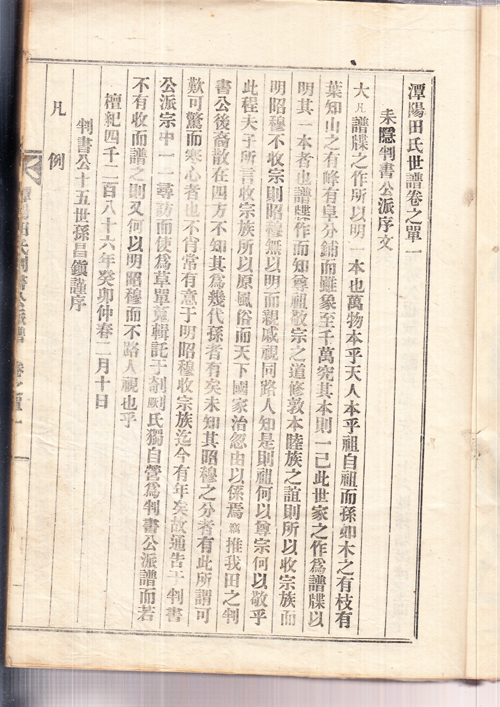 潭陽田氏世譜卷之單一
耒隱判書公派序文
大凡譜牒之作所以明一本也萬物本乎天人本乎祖自祖而孫如木之有枝有
葉知山之有峰有阜分鋪而雖象至千萬究其本則一己此世家之作爲譜牒以
明其一本者也譜牒作而知尊祖敬宗之道修敦本陸族之誼則所以收宗族而
明昭穆不收宗則昭穆無以明而親戚視同路人知是則祖何以尊宗何以敬乎
此程夫子所言收宗族所以原風俗而天下國家治忽由以係焉竊推我田之判
書公後裔散在四方不知其爲幾代孫者有矣未知其昭穆之分者有此所謂可
歎可驚而寒心者也不肖常有意于明昭穆收宗族迄今有年矣故通告于判書
公派宗中一二尋訪而使爲草單蒐輯託于剞劂氏獨自營爲判書公派譜而若
不有收而譜之則又何以明昭穆而不路人視也乎
檀紀四千二百八十六年癸卯仲春二月十日
判書公十五世孫昌鎭謹序
凡例